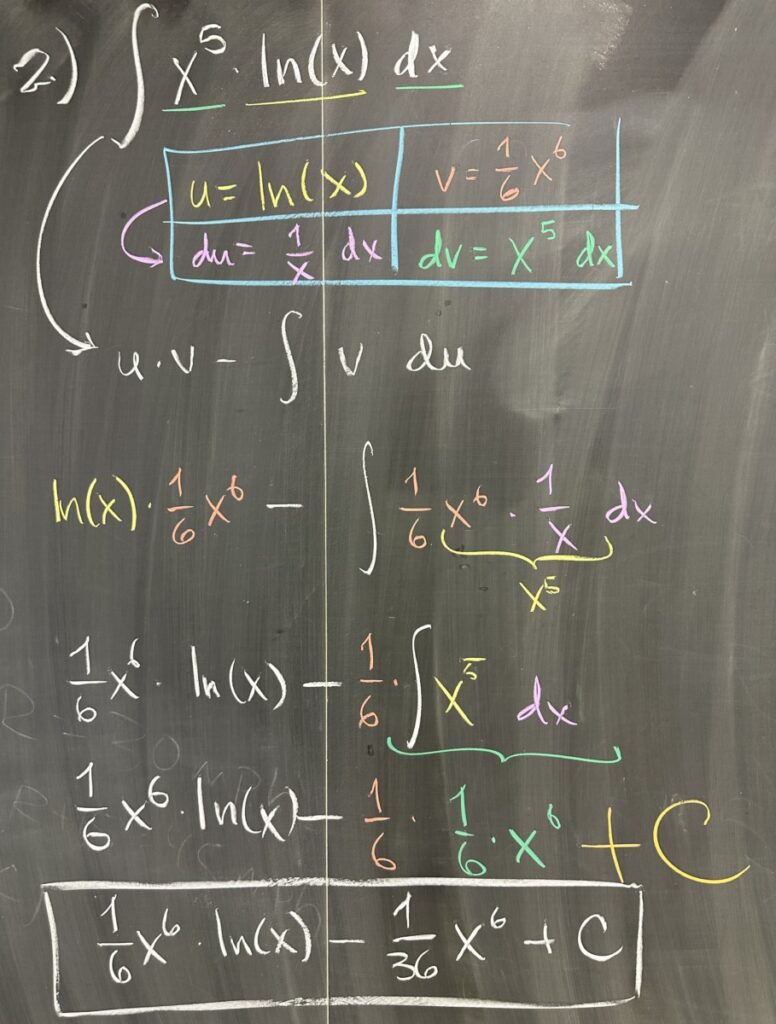 2.) ∫ x⁵ · ln(x) dx
u = ln(x) v = 1/6 x⁶
du = 1/x dx dv = x⁵ dx
u·v - ∫ v du
ln(x) · 1/6 x⁶ - ∫ 1/6 x⁶ · 1/x dx
x⁵
1/6 x⁶ · ln(x) - 1/6 · ∫ x⁵ dx
1/6 x⁶ · ln(x) - 1/6 · 1/6 · x⁶ + C
1/6 x⁶ · ln(x) - 1/36 x⁶ + C